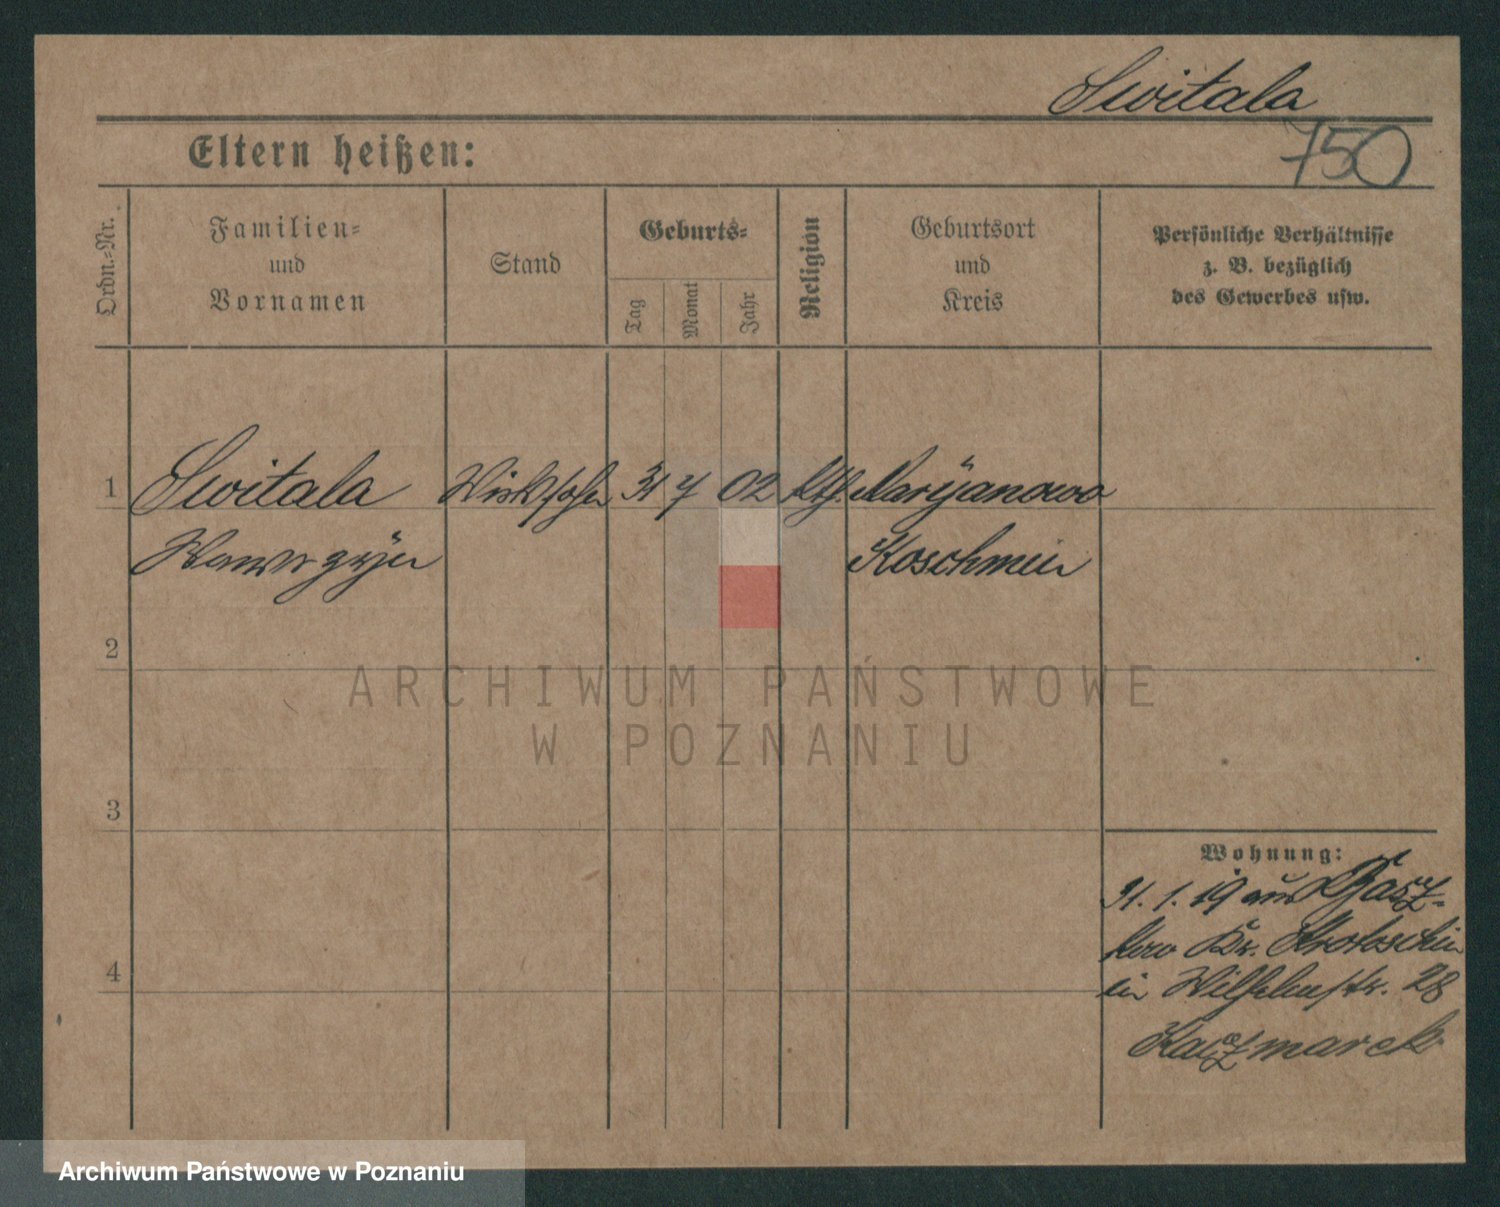 Switala
750
Eltern heißen:
Ordn.-Nr.
Familien-
und
Vornamen
Stand
Geburts-
Tag
Monat
Jahr
Religion
Geburtsort
und
Kreis
Persönliche Verhältnisse
z. B. bezüglich
des Gewerbes usw.
1
Switala
31
7
02
kth.
Maryanowo
Koschmin
2
3
4
Wohnung:
31. 1. 19 aus
Kr. Krotoschin
in Wilhelmstr. 28
Kaczmarek
ARCHIWUM PAŃSTWOWE
W POZNANIU
Archiwum Państwowe w Poznaniu